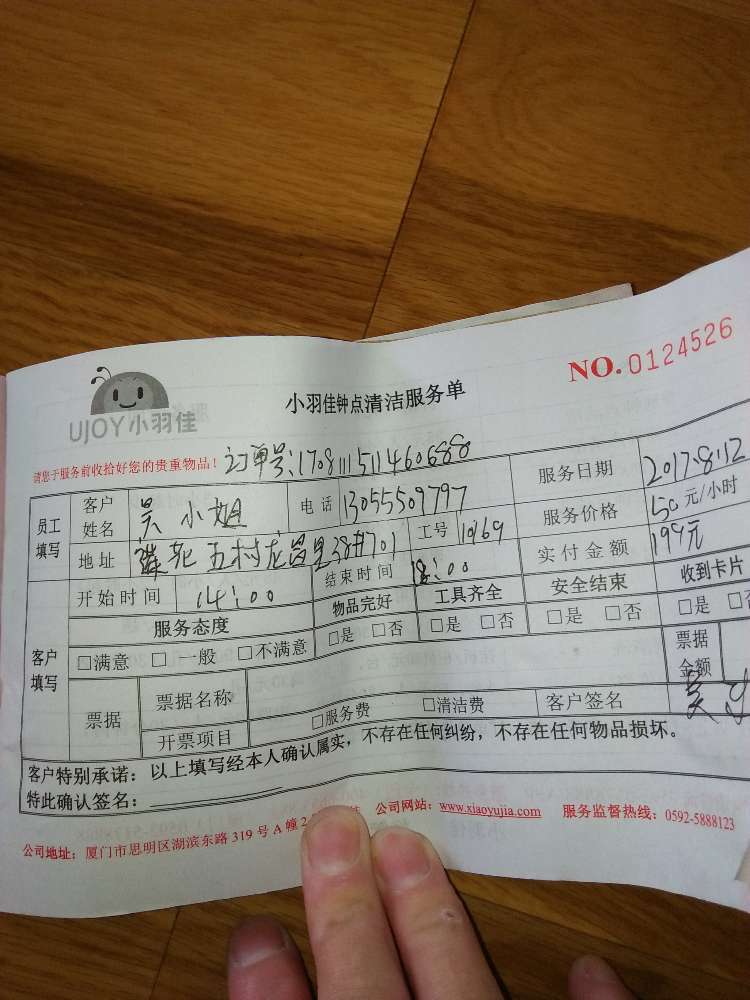 NO.0124526
UJOY小羽佳
小羽佳钟点清洁服务单
请您于服务前收拾好您的贵重物品！ 订单号:1708111511460688
员工填写 客户姓名 吴小姐 电话 13055509797 服务日期 2017.8.12
地址 五村龙昌里38#701 工号 10169 服务价格 50元/小时
客户填写 开始时间 14:00 结束时间 18:00 实付金额 199元
服务态度 物品完好 工具齐全 安全结束 收到卡片
□满意 □一般 □不满意 □是 □否 □是 □否 □是 □否 □是
票据 票据名称 票据金额
开票项目 □服务费 □清洁费 客户签名 吴
客户特别承诺：以上填写经本人确认属实，不存在任何纠纷，不存在任何物品损坏。
特此确认签名：
公司地址：厦门市思明区湖滨东路319号A幢2 公司网站：www.xiaoyujia.com 服务监督热线：0592-5888123